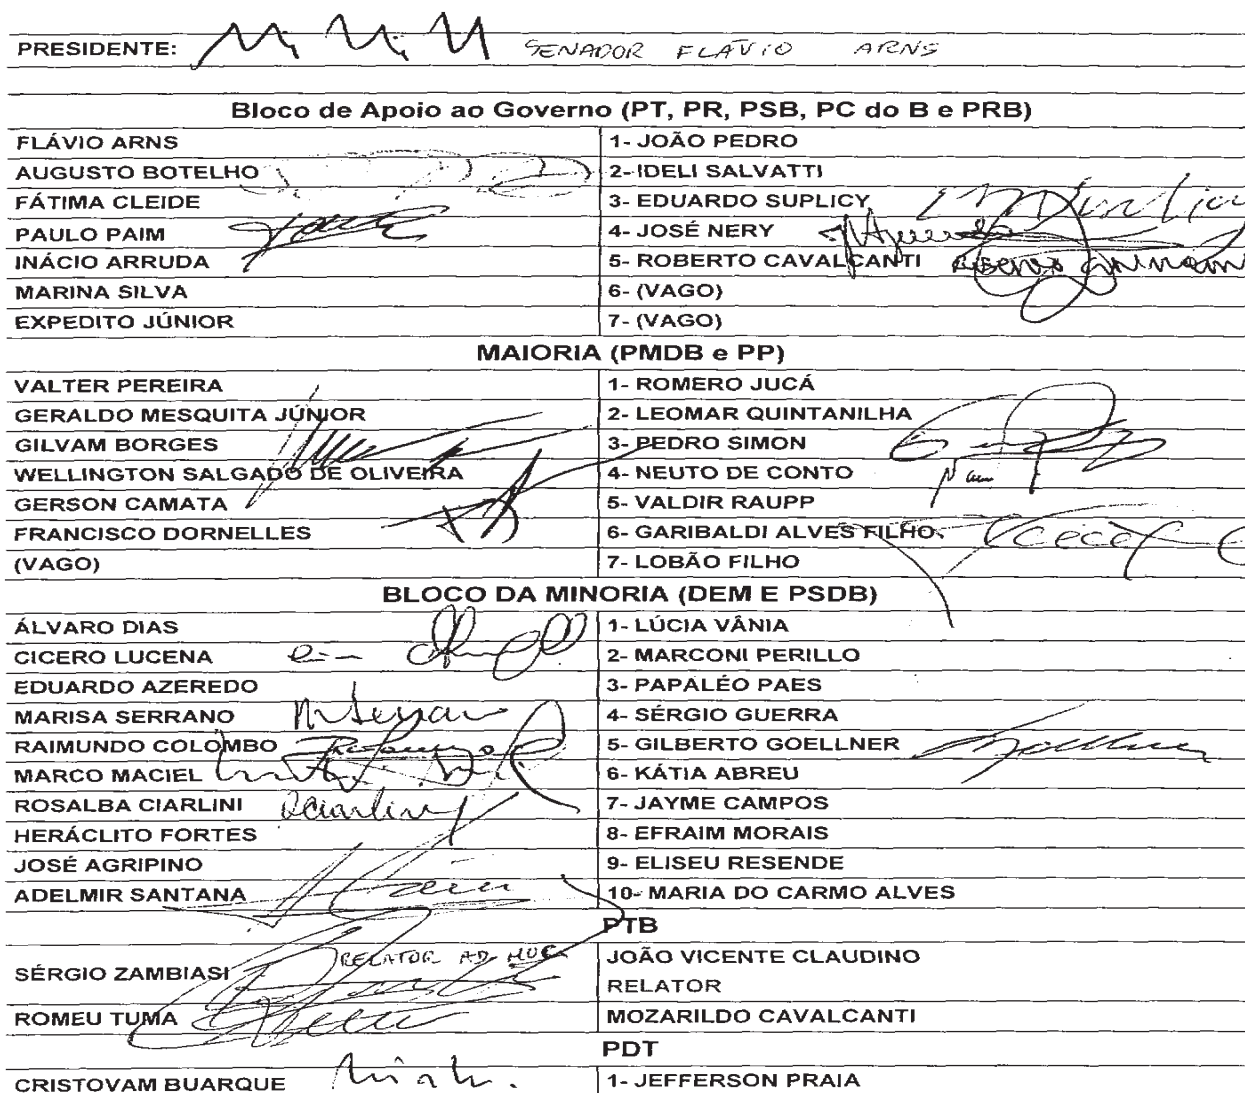 PRESIDENTE: SENADOR FLÁVIO ARNS
Bloco de Apoio ao Governo (PT, PR, PSB, PC do B e PRB)
FLÁVIO ARNS 1- JOÃO PEDRO
AUGUSTO BOTELHO 2- IDELI SALVATTI
FÁTIMA CLEIDE 3- EDUARDO SUPLICY
PAULO PAIM 4- JOSÉ NERY
INÁCIO ARRUDA 5- ROBERTO CAVALCANTI
MARINA SILVA 6- (VAGO)
EXPEDITO JÚNIOR 7- (VAGO)
MAIORIA (PMDB e PP)
VALTER PEREIRA 1- ROMERO JUCÁ
GERALDO MESQUITA JÚNIOR 2- LEOMAR QUINTANILHA
GILVAM BORGES 3- PEDRO SIMON
WELLINGTON SALGADO DE OLIVEIRA 4- NEUTO DE CONTO
GERSON CAMATA 5- VALDIR RAUPP
FRANCISCO DORNELLES 6- GARIBALDI ALVES FILHO
(VAGO) 7- LOBÃO FILHO
BLOCO DA MINORIA (DEM E PSDB)
ÁLVARO DIAS 1- LÚCIA VÂNIA
CICERO LUCENA 2- MARCONI PERILLO
EDUARDO AZEREDO 3- PAPALÉO PAES
MARISA SERRANO 4- SÉRGIO GUERRA
RAIMUNDO COLOMBO 5- GILBERTO GOELLNER
MARCO MACIEL 6- KÁTIA ABREU
ROSALBA CIARLINI 7- JAYME CAMPOS
HERÁCLITO FORTES 8- EFRAIM MORAIS
JOSÉ AGRIPINO 9- ELISEU RESENDE
ADELMIR SANTANA 10- MARIA DO CARMO ALVES
PTB
SÉRGIO ZAMBIASI RELATOR AD HOC JOÃO VICENTE CLAUDINO
RELATOR
ROMEU TUMA MOZARILDO CAVALCANTI
PDT
CRISTOVAM BUARQUE 1- JEFFERSON PRAIA